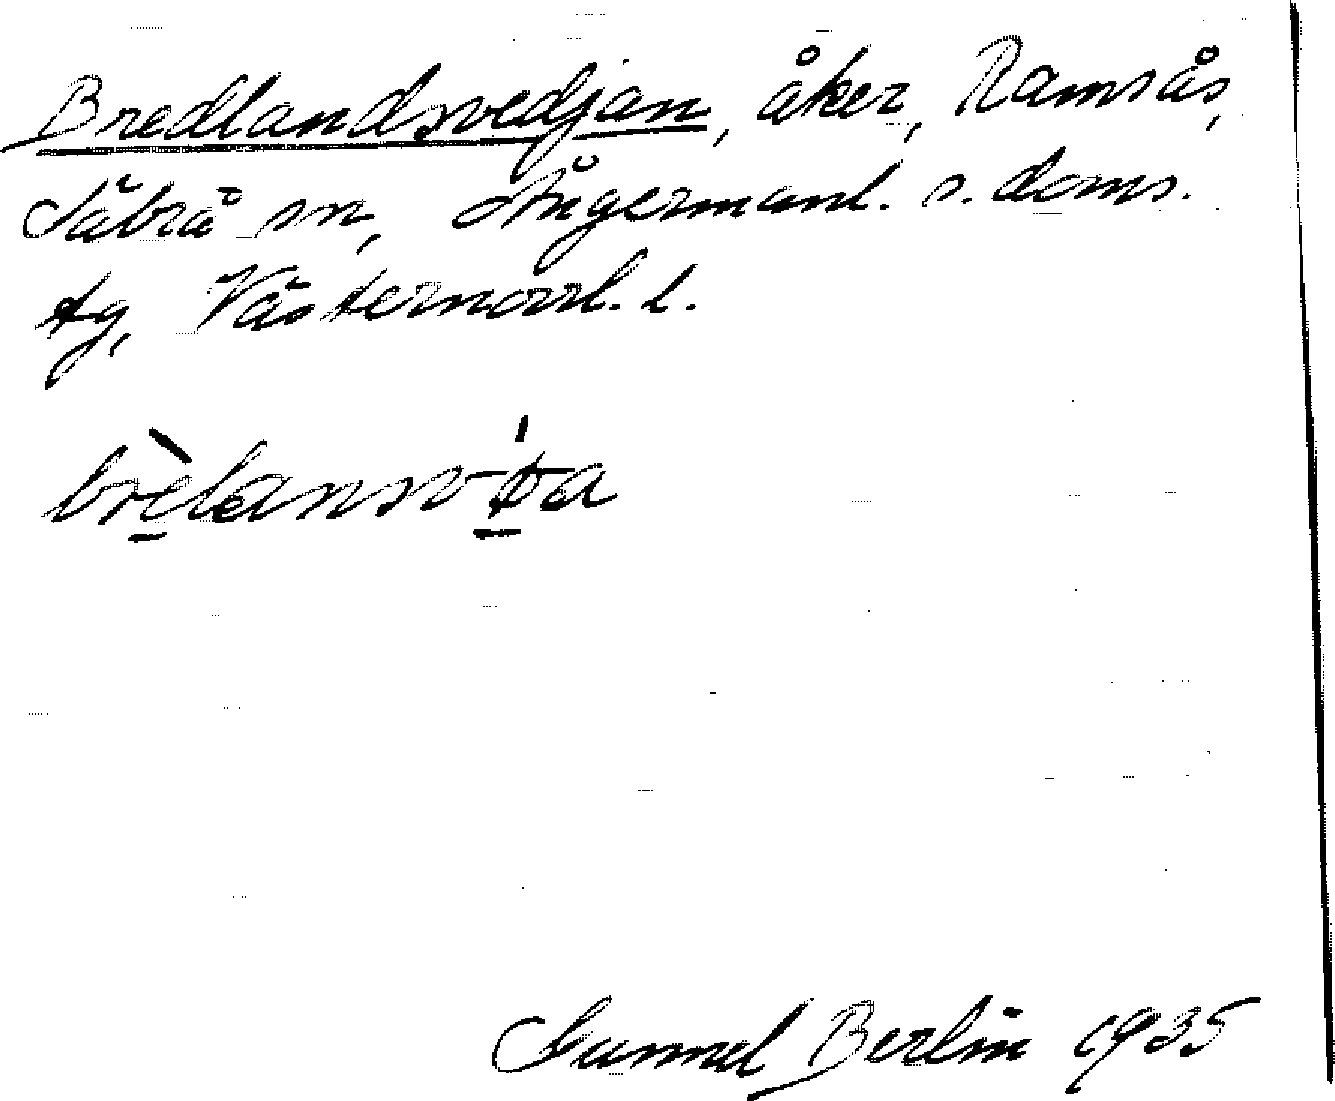 Bredlandsvedjan, åker, Ramsås,
Säbrå sn, Ångermanl. s. doms.
tg, Västernorrl. l.
Gunnel Berlin 1935